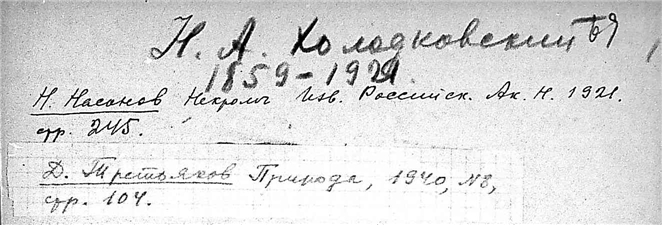 Н. А. Холодковский
1859–1921.
Н. Насонов Некролъ Изв. Российск. Ак. Н. 1921.
стр. 245.
Д. Третьяков Природа, 1940, №8,
стр. 104.